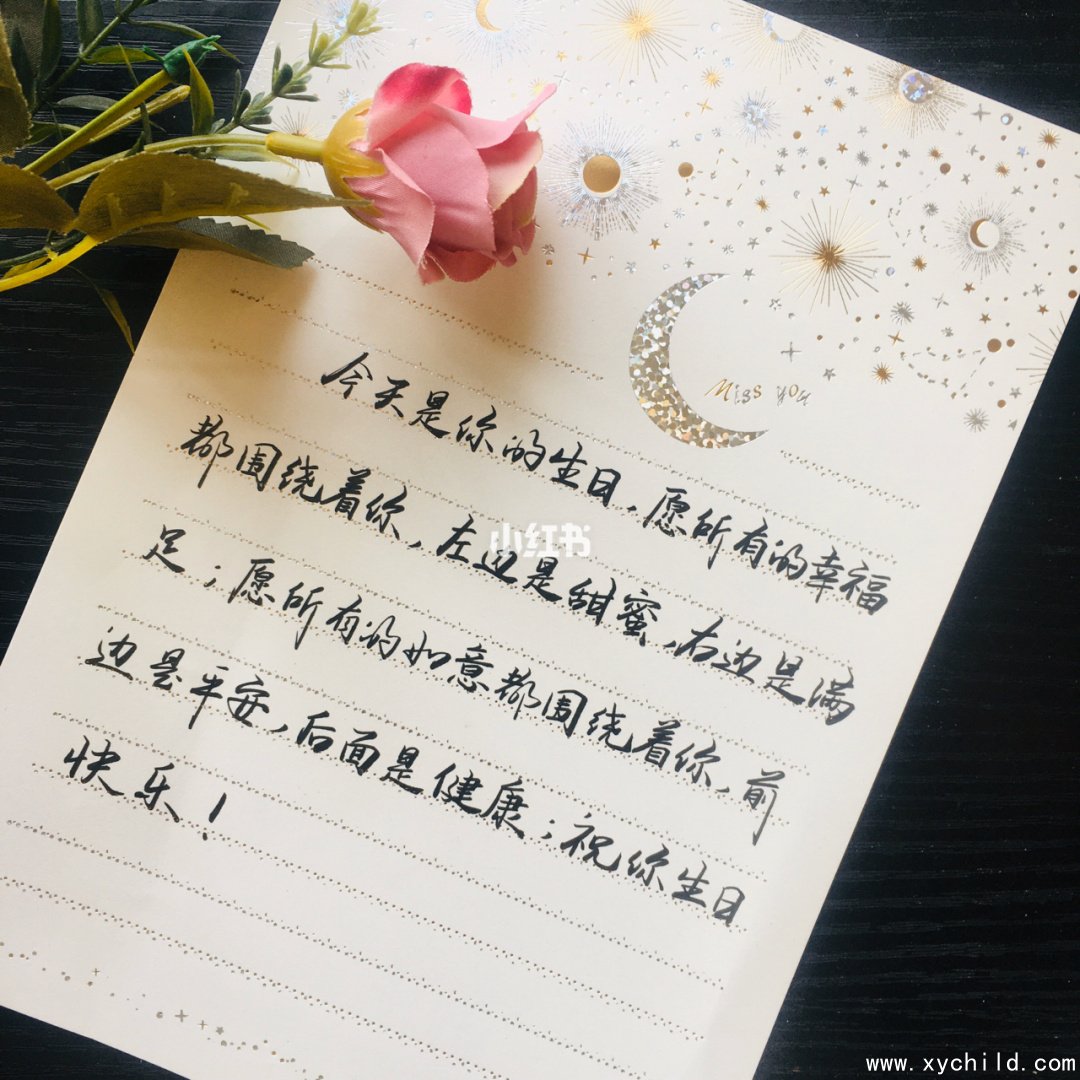 Miss you
今天是你的生日,愿所有的幸福
都围绕着你,左边是甜蜜,右边是满
足;愿所有的如意都围绕着你,前
边是平安,后面是健康;祝你生日
快乐!
小红书
www.xychild.com